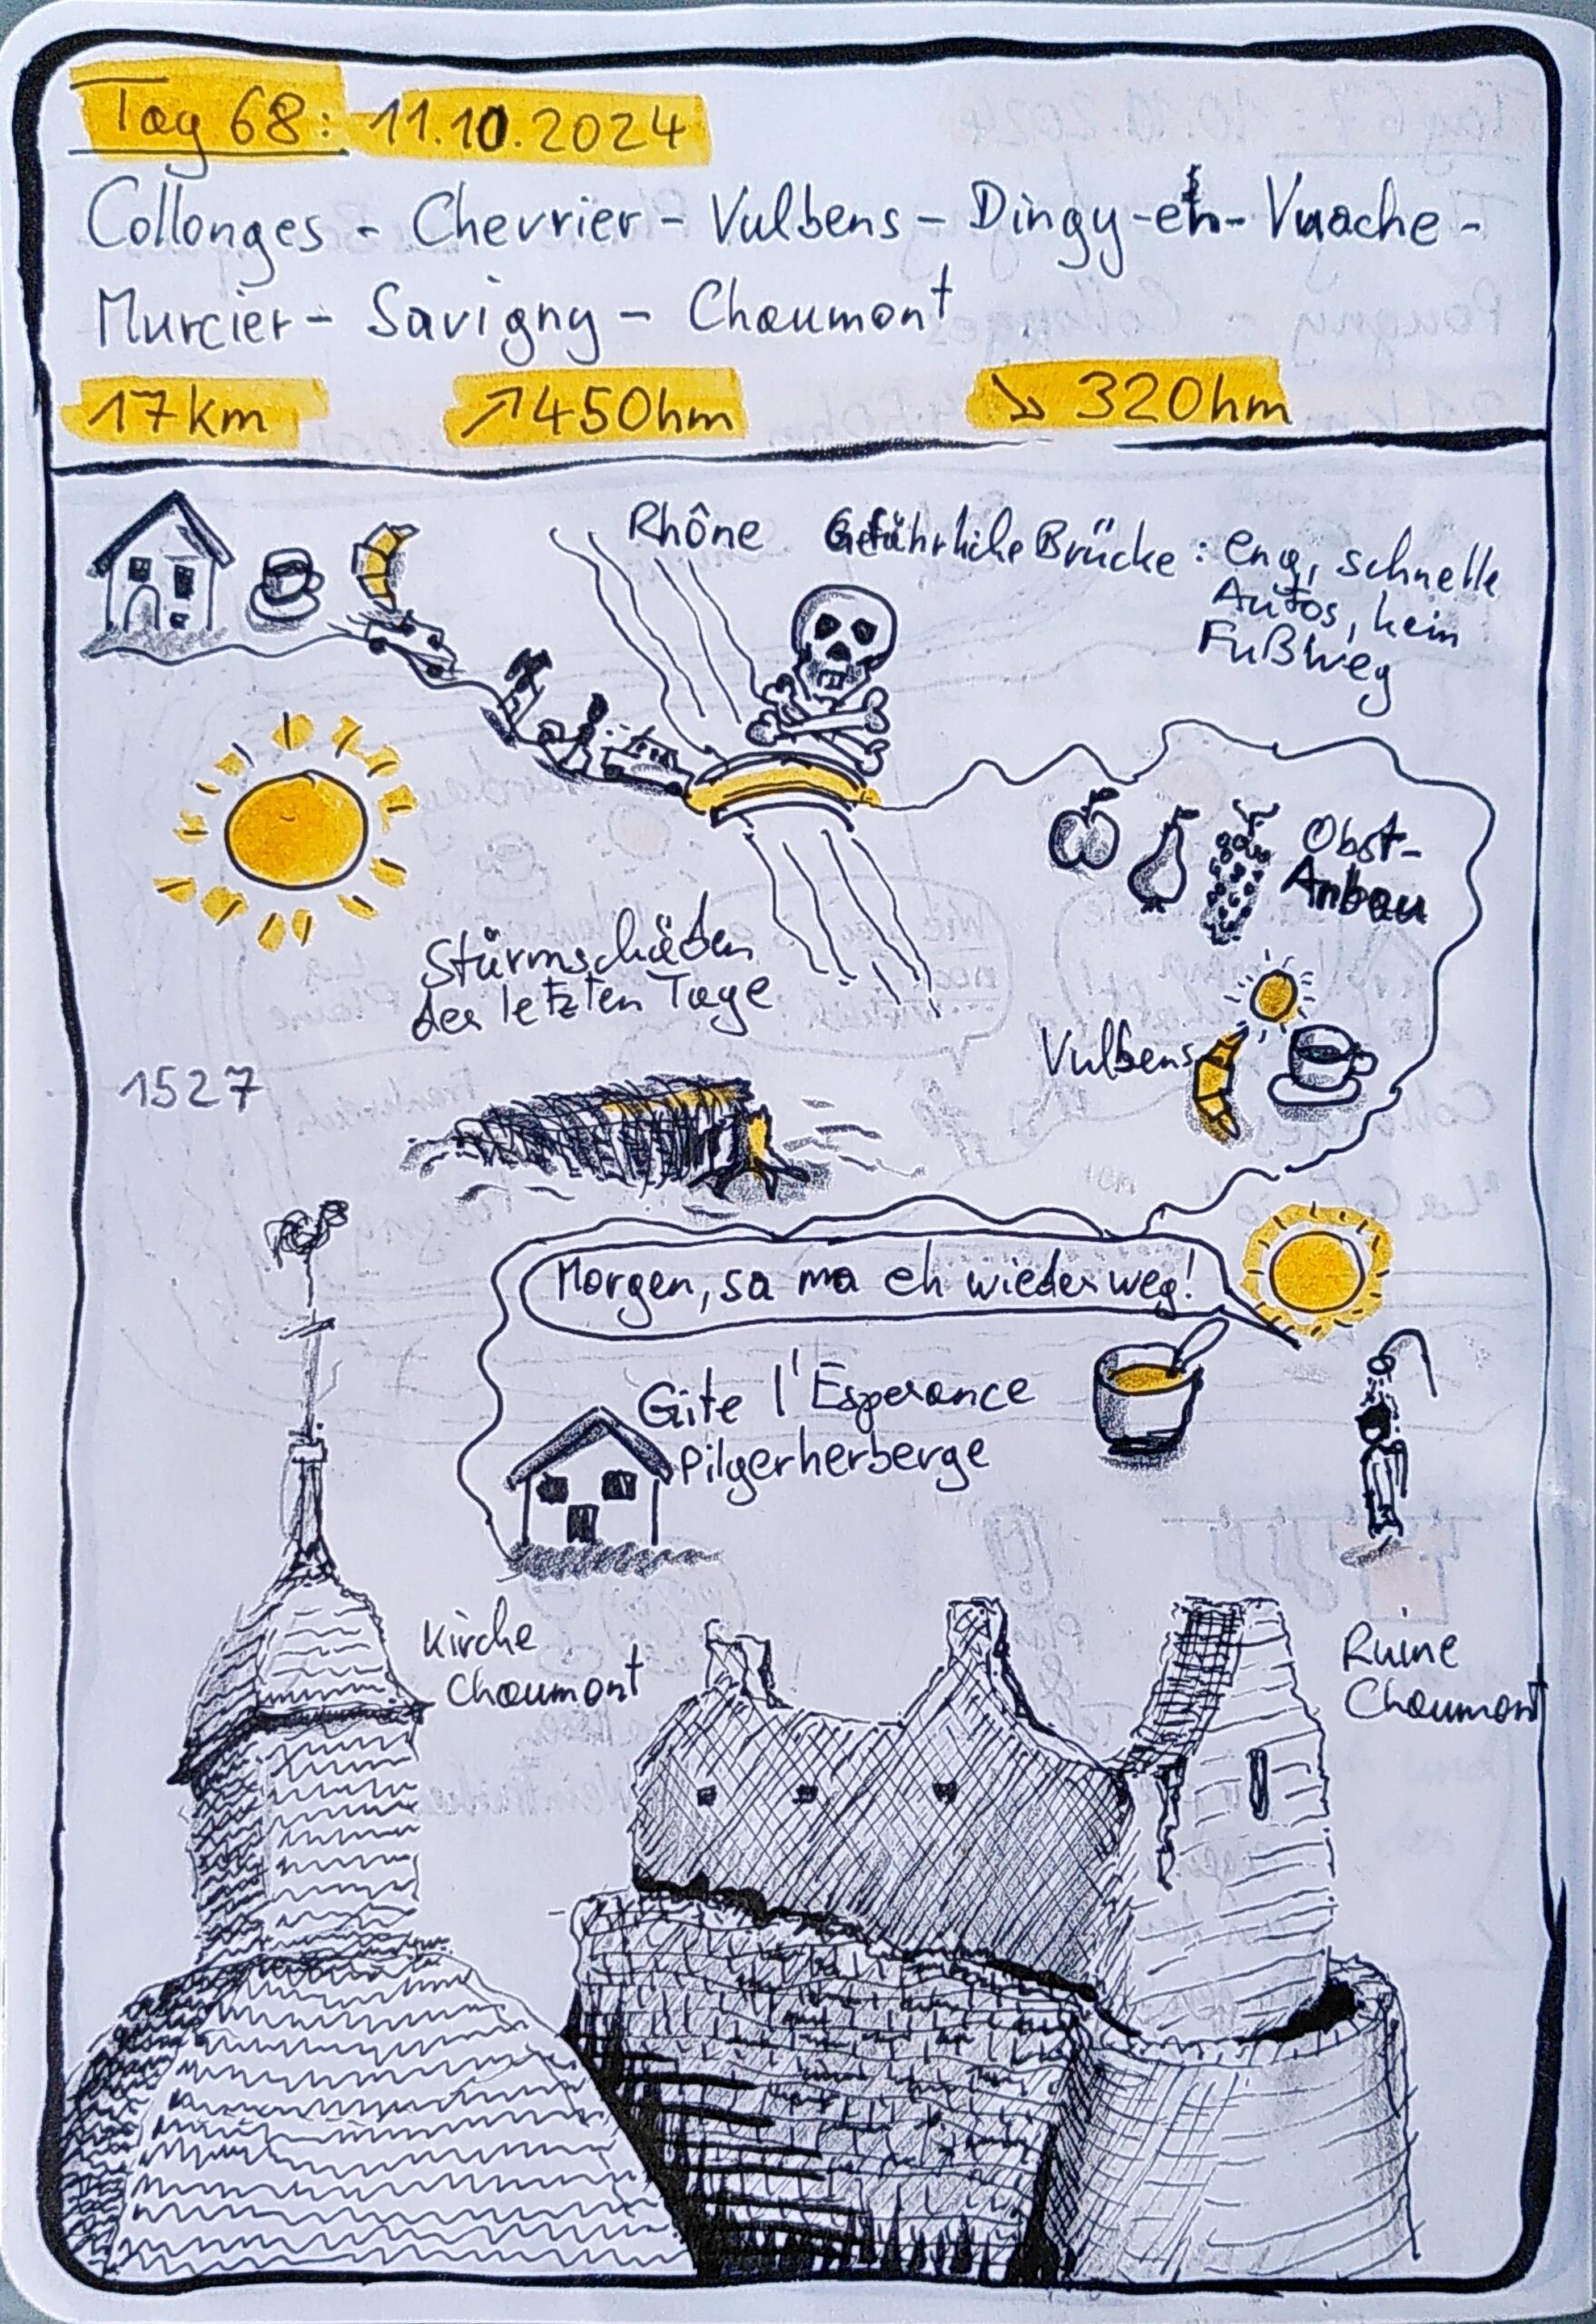 Tag 68: 11.10.2024
Collonges - Chevrier - Vulbens - Dingy-en-Vuache -
Murcier - Savigny - Chaumont
17km ↗450hm ↘ 320hm
Rhône
Gefährliche Brücke: eng, schnelle
Autos, kein
Fußweg
Obst-
Anbau
Sturmschäden
der letzten Tage
Vulbens
1527
Morgen, sa ma eh wieder weg!
Gite l'Esperance
Pilgerherberge
Kirche
Chaumont
Ruine
Chaumont